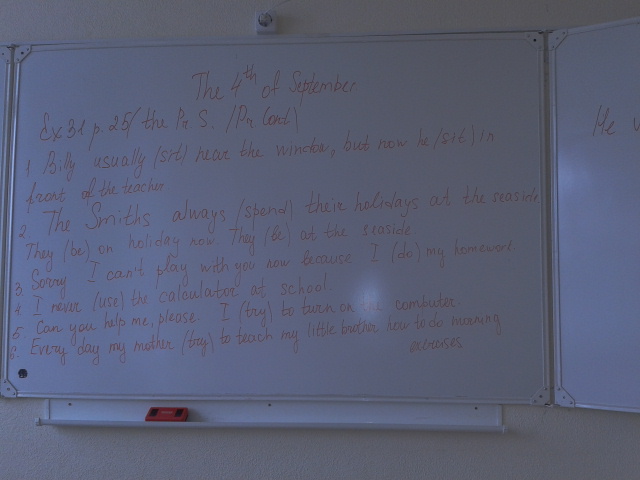 The 4th of September
Ex 31 p. 25/ the Pr. S. /Pr. Cont\
1. Billy usually (sit) near the window, but now he /sit\ in
front of the teacher.
2. The Smiths always /spend) their holidays at the seaside
They (be) on holiday now. They (be) at the seaside.
3. Sorry I can't play with you now because I (do) my homework.
4. I never (use) the calculator at school.
5. Can you help me, please. I (try) to turn on the computer.
6. Every day my mother (try) to teach my little brother how to do morning
exercises
He